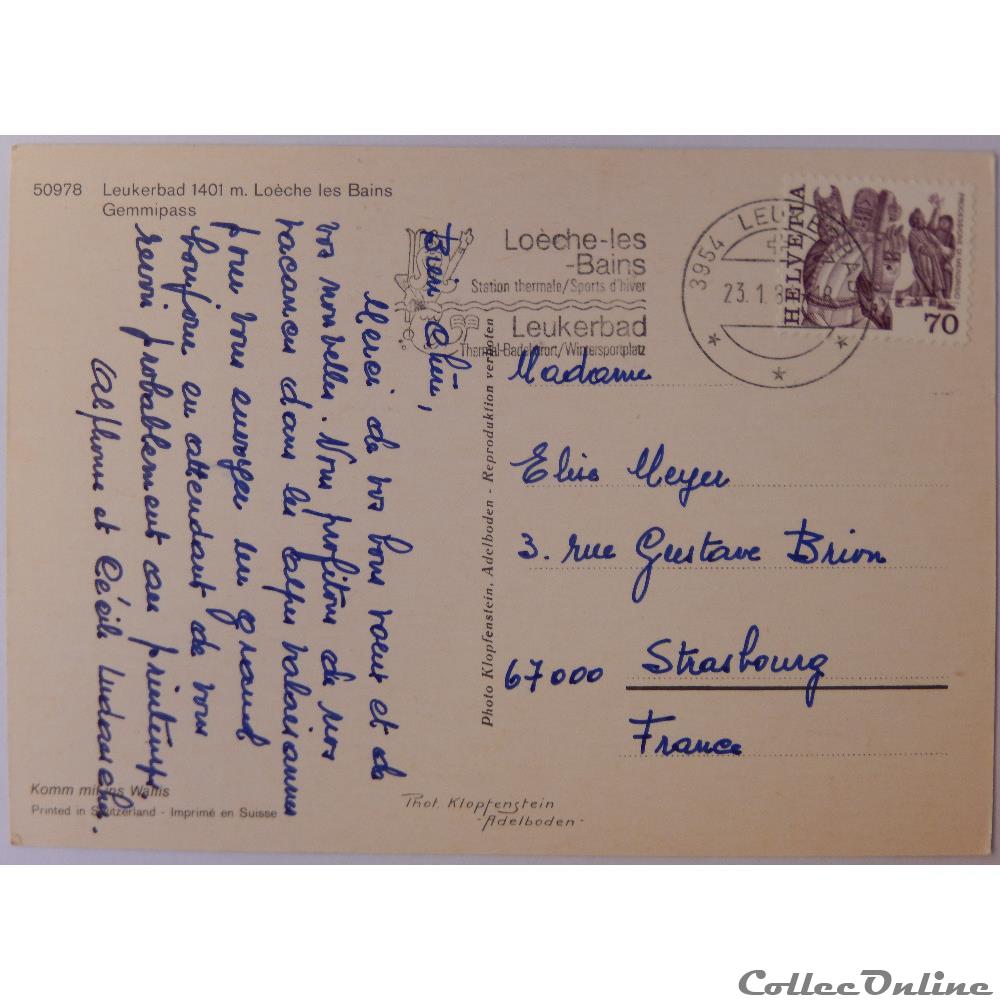 50978 Leukerbad 1401 m. Loèche les Bains
Gemmipass
Loèche-les
-Bains
Station thermale/Sports d'hiver
Leukerbad
Thermal-Badekurort/Wintersportplatz
3954 LEUKERBAD
23.1.8
HELVETIA
70
Bien chère,
Merci de vos bons voeux et de
vos nouvelles. Nous profitons de nos
vacances dans les alpes valaisannes
pour vous envoyer un grand
bonjour en attendant de vous
revoir probablement au printemps.
Alphonse et Cécile
Photo Klopfenstein, Adelboden - Reproduktion verboten
Madame
Elise Meyer
3. rue Gustave Brion
67000 Strasbourg
France
Komm mit ins Wallis
Printed in Switzerland - Imprimé en Suisse
Phot. Klopfenstein
-Adelboden-
CollecOnline